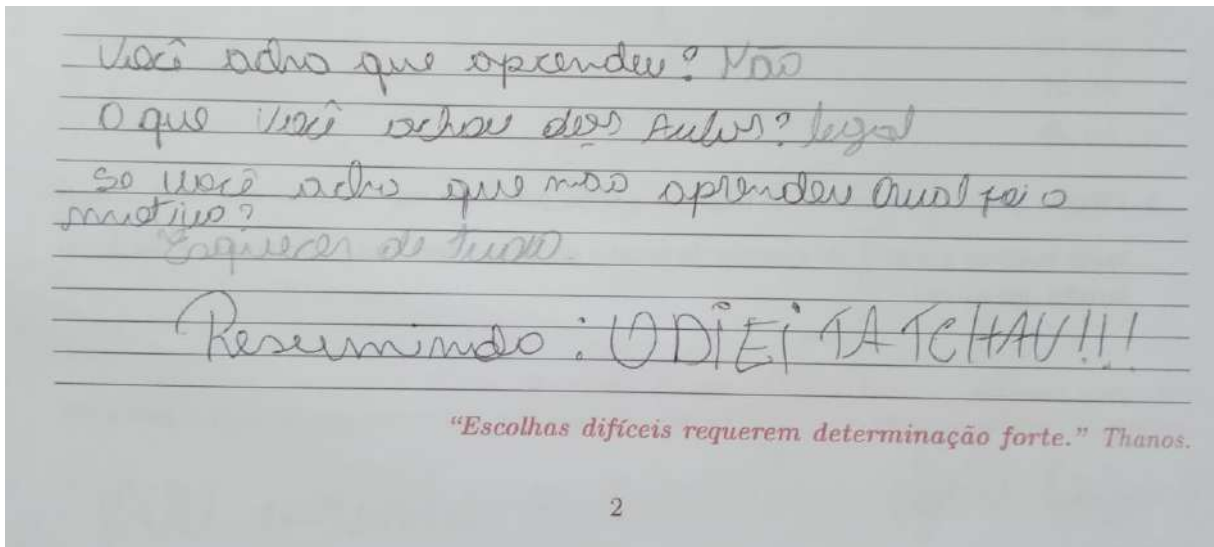 Você acha que aprendeu? Não
O que você achou das Aulas? legal
se você acha que não aprendeu Qual foi o
motivo?
Esquecer de tudo.
Resumindo: ODIEI TA TCHAU!!!
“Escolhas difíceis requerem determinação forte.” Thanos.
2